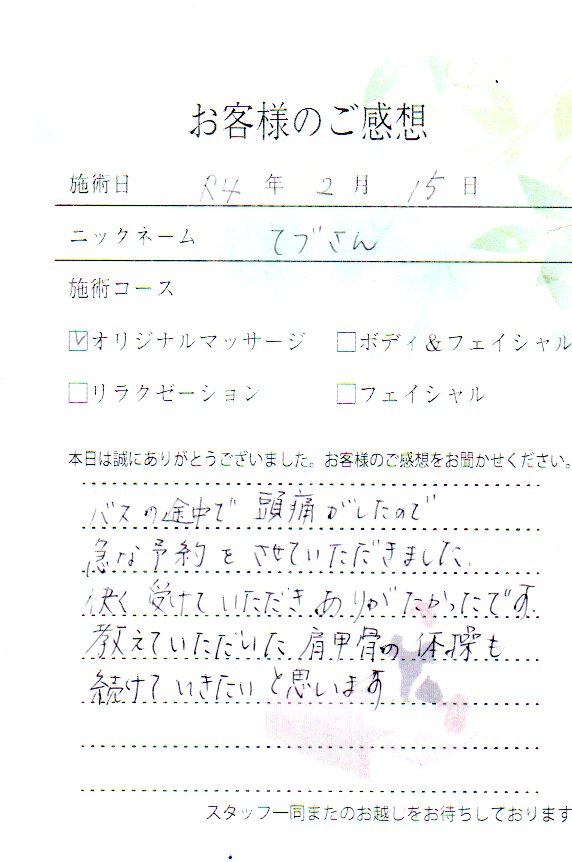 お客様のご感想
施術日 R4 年 2 月 15 日
ニックネーム てづさん
施術コース
☑オリジナルマッサージ □ボディ&フェイシャル
□リラクゼーション □フェイシャル
本日は誠にありがとうございました。お客様のご感想をお聞かせください。
バスの途中で頭痛がしたので
急な予約をさせていただきました.
快く受けていただきありがたかったです.
教えていただいた肩甲骨の体操も
続けていきたいと思います
スタッフ一同またのお越しをお待ちしております